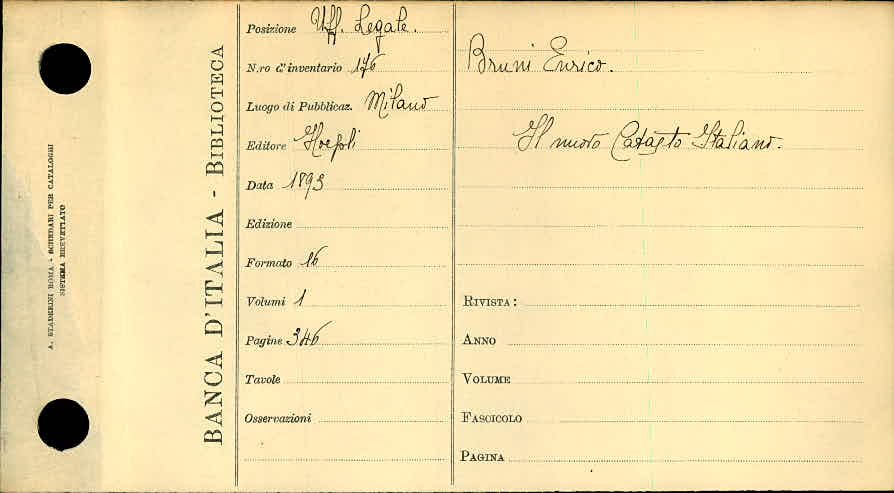 A. STADERINI ROMA - SCHEDARI PER CATALOGHI
SISTEMA BREVETTATO
BANCA D'ITALIA - BIBLIOTECA
Posizione Uff. Legale.
N.ro d'inventario 176
Luogo di Pubblicaz. Milano
Editore Hoepli
Data 1893
Edizione
Formato 16
Volumi 1
Pagine 346
Tavole
Osservazioni
Bruni Enrico.
Il nuovo Catasto Italiano.
RIVISTA:
ANNO
VOLUME
FASCICOLO
PAGINA